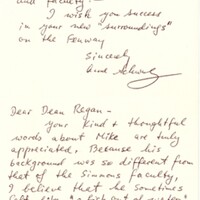 and faculty.
I wish you success
in your new "surroundings"
on the Fenway
Sincerely
Dear Dean Regan -
Your kind + thoughtful
words about Mike are truly
appreciated. Because his
background was so different from
that of the Simmons Faculty,
I believe that he sometimes
felt like "a fish out of water"